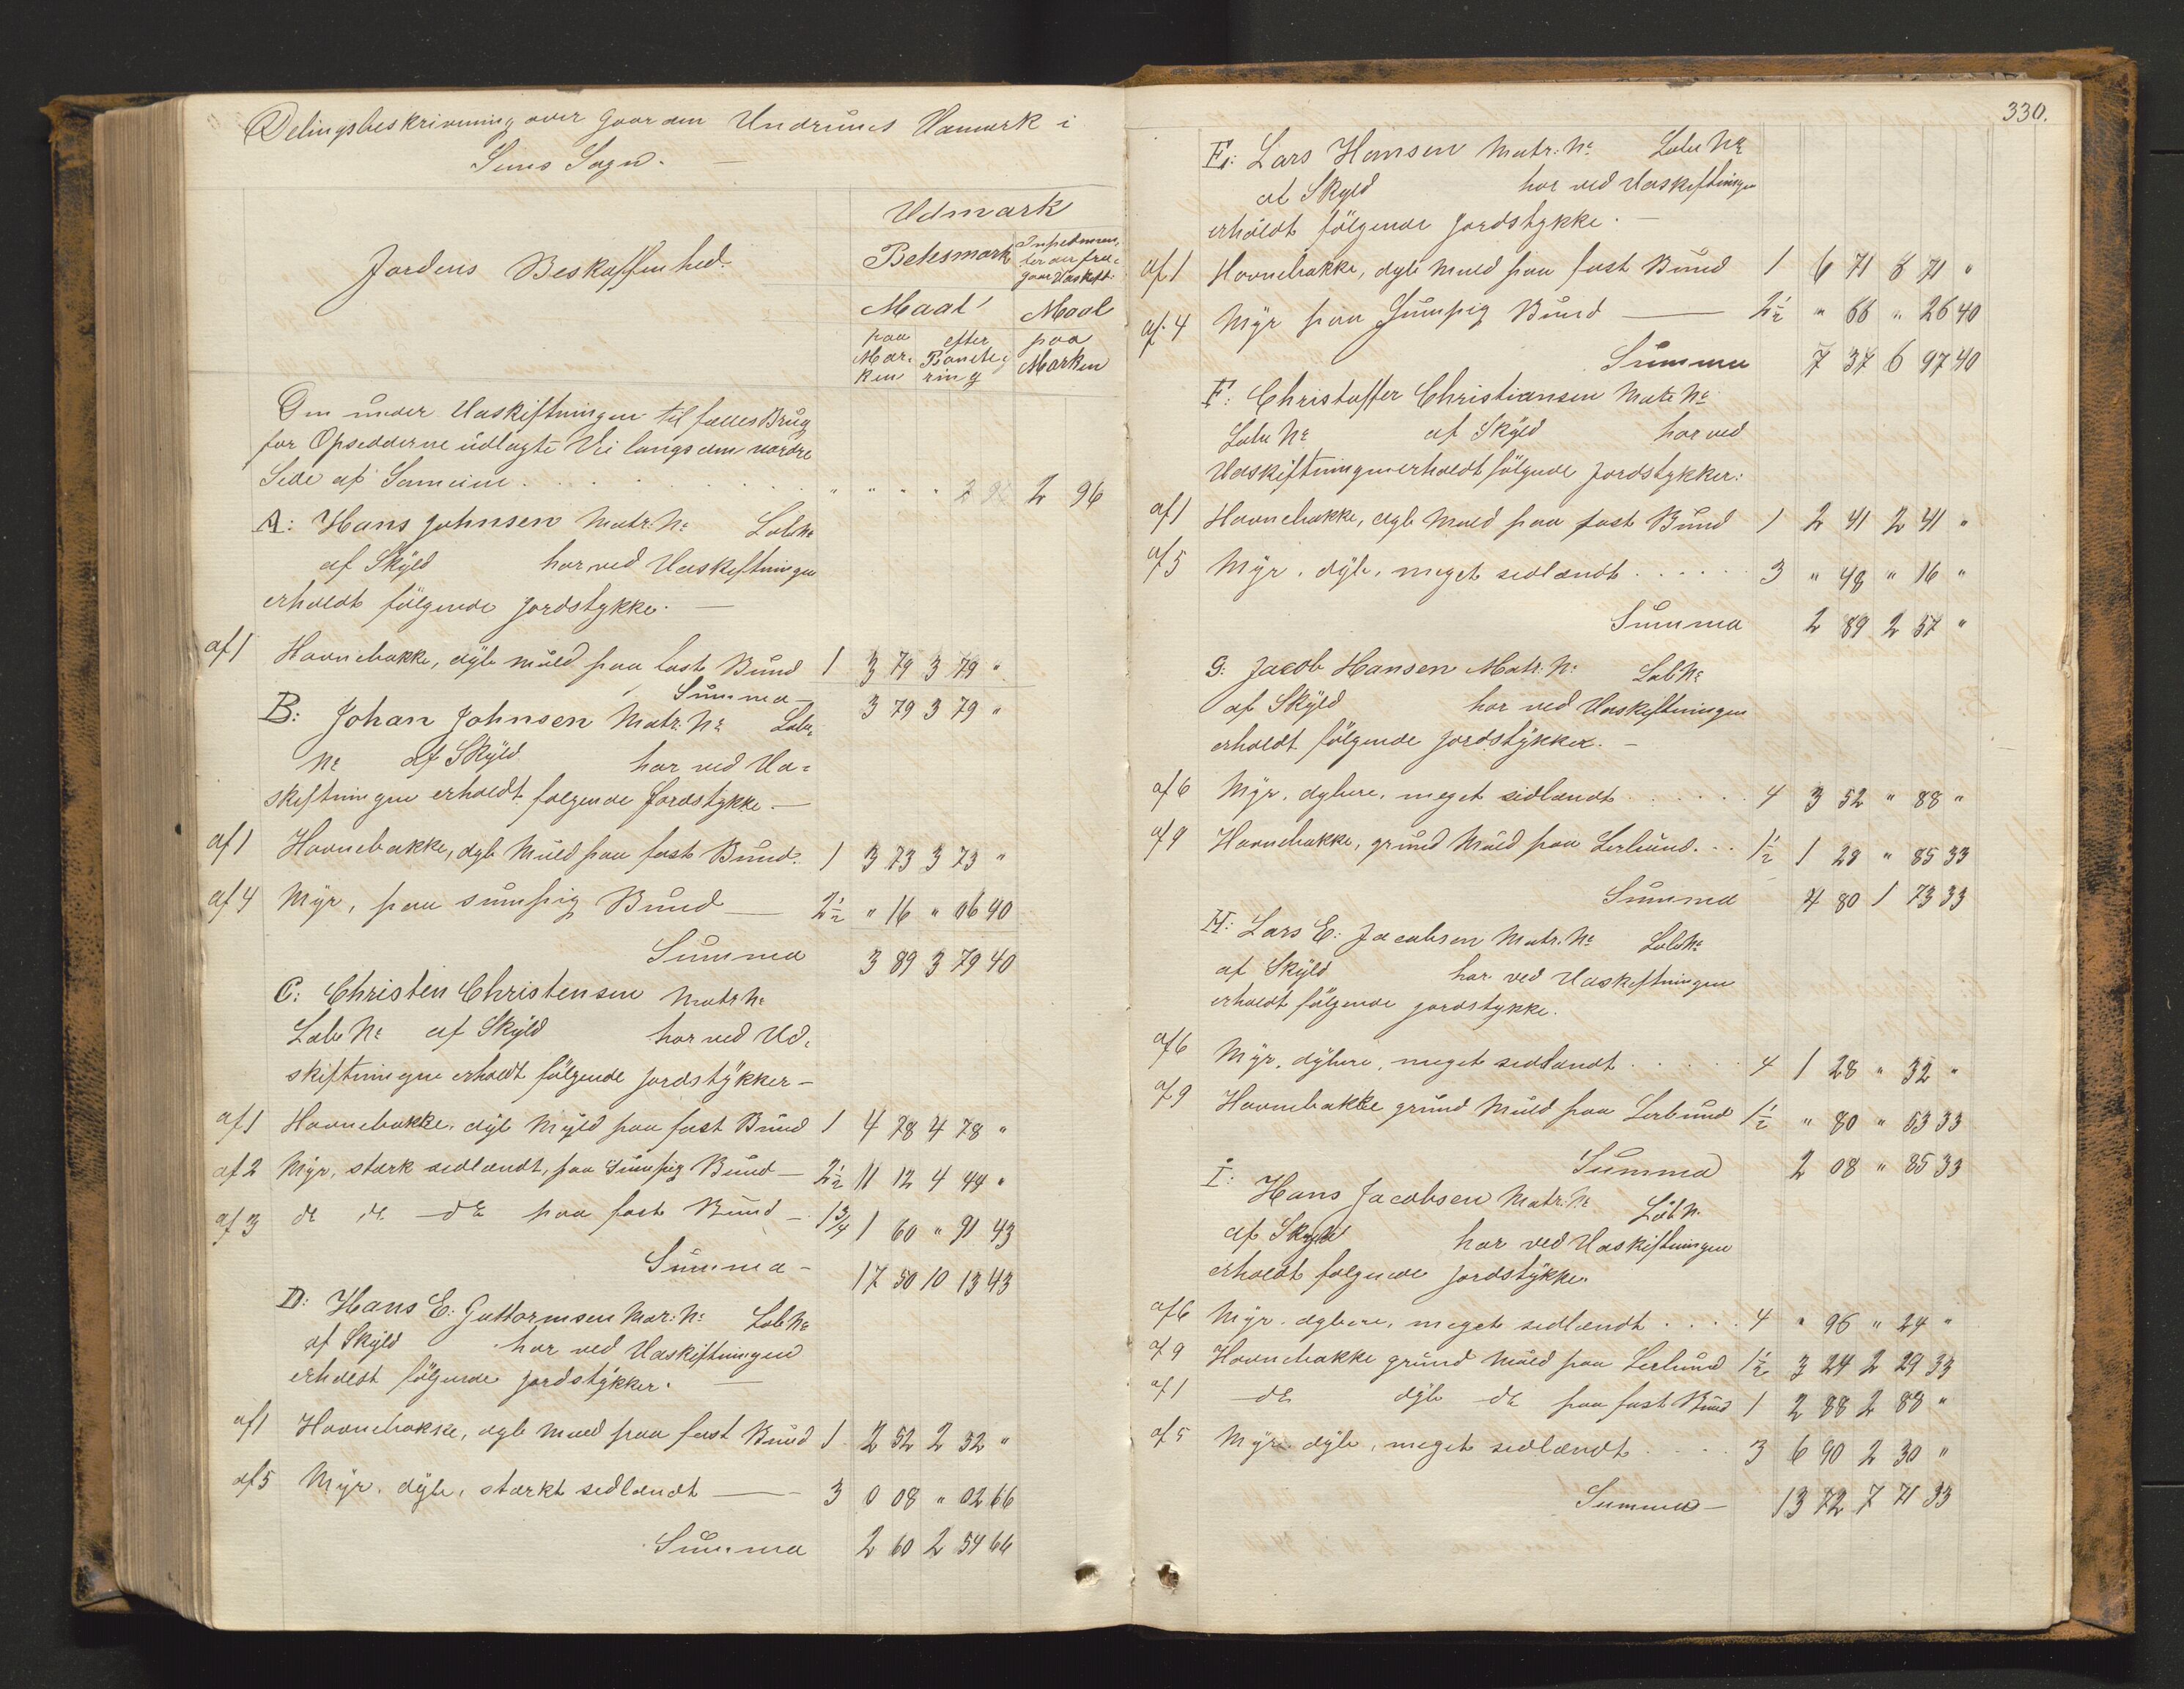 Delingsbeskrivning over Gaarden Undrums Udmark i
Sems Sogn. —
Jordens Beskaffenhed.
Udmark
Betesmark
Maal
Maal
paa Marken
efter Bonitering
paa Marken
Den under Udskiftningen til fælles Brug
for Opsidderne udlagte Vei langs den nordre
Side af Sameiet . . . . . " " " " 2 96
A: Hans Johnsen Matr. No Løbe No
af Skyld har ved Udskiftningen
erholdt følgende Jordstykke. —
af 1 Havnebakke, dyb Muld paa fast Bund 1 3 79 3 79 "
Summa — 3 79 3 79 "
B: Johan Johnsen Matr. No Løbe
No af Skyld har ved Ud=
skiftningen erholdt følgende Jordstykke. —
af 1 Havnebakke, dyb Muld paa fast Bund. 1 3 73 3 73 "
af 4 Myr, paa sumpig Bund — 2½ " 16 " 06 40
Summa 3 89 3 79 40
C: Christen Christensen Matr No
Løbe No af Skyld har ved Ud=
skiftningen erholdt følgende Jordstykker —
af 1 Havnebakke, dyb Muld paa fast Bund 1 4 78 4 78 "
af 2 Myr, stærk sidlændt, paa sumpig Bund — 2½ 11 12 4 44 "
af 3 do do do paa fast Bund — 1¾ 1 60 " 91 43
Summa — 17 50 10 13 43
D: Hans E. Guttormsen Mar. No Løb No
af Skyld har ved Udskiftningen
erholdt følgende Jordstykker. —
af 1 Havnebakke, dyb Muld paa fast Bund 1 2 52 2 52 "
af 5 Myr, dyb, stærkt sidlændt — 3 0 08 " 02 66
Summa 2 60 2 54 66
330.
E: Lars Hansen Matr. No Løbe No
af Skyld har ved Udskiftningen
erholdt følgende Jordstykke. —
af 1 Havnebakke, dyb Muld paa fast Bund 1 6 71 6 71 "
af 4 Myr paa Sumpig Bund — 2½ " 66 " 26 40
Summa 7 37 6 97 40
F: Christoffer Christiansen Matr No
Løbe No af Skyld har ved
Udskiftningen erholdt følgende Jordstykker:
af 1 Havnebakke, dyb Muld paa fast Bund 1 2 41 2 41 "
af 5 Myr, dyb, meget sidlændt . . . . . 3 " 48 " 16 "
Summa 2 89 2 57 "
G: Jacob Hansen Matr. No Løb No
af Skyld har ved Udskiftningen
erholdt følgende Jordstykker. —
af 6 Myr, dybere, meget sidlændt . . . . . 4 3 52 " 88 "
af 9 Havnebakke, grund Muld paa Lerbund. . . 1½ 1 28 " 85 33
Summa 4 80 1 73 33
H: Lars E. Jacobsen Matr. No Løbe No
af Skyld har ved Udskiftningen
erholdt følgende Jordstykke.
af 6 Myr, dybere, meget sidlændt . . . . . 4 1 28 " 32 "
af 9 Havnebakke grund Muld paa Lerbund 1½ " 80 " 53 33
Summa 2 08 " 85 33
I: Hans Jacobsen Matr. No Løb N.
af Skyld har ved Udskiftningen
erholdt følgende Jordstykker
af 6 Myr, dybere, meget sidlændt . . . . 4 " 96 " 24 "
af 9 Havnebakke grund Muld paa Lerbund 1½ 3 24 2 29 33
af 1 do dyb do paa fast Bund 1 2 88 2 88 "
af 5 Myr dyb, meget sidlændt . . . . 3 6 90 2 30 "
Summa — 13 72 7 71 33